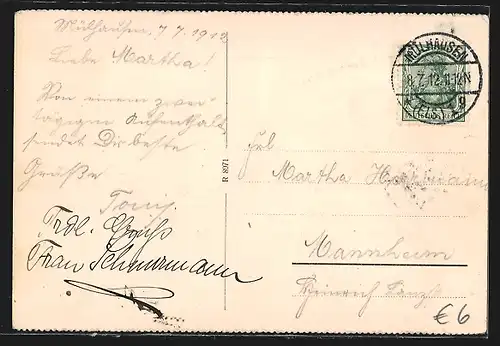 Mülhausen, 7 7 1912
Liebe Martha!
Von einem zwei-
tägigen Aufenthalt
sendet Dir beste
Grüße
Tony
Frdl. Gruß
Frau Schnurmann
R 8071
MÜLHAUSEN
8.7.12.11-12N
(ELS.)
Frl.
Martha
Mannheim
Heinrich Lanzstr
€6